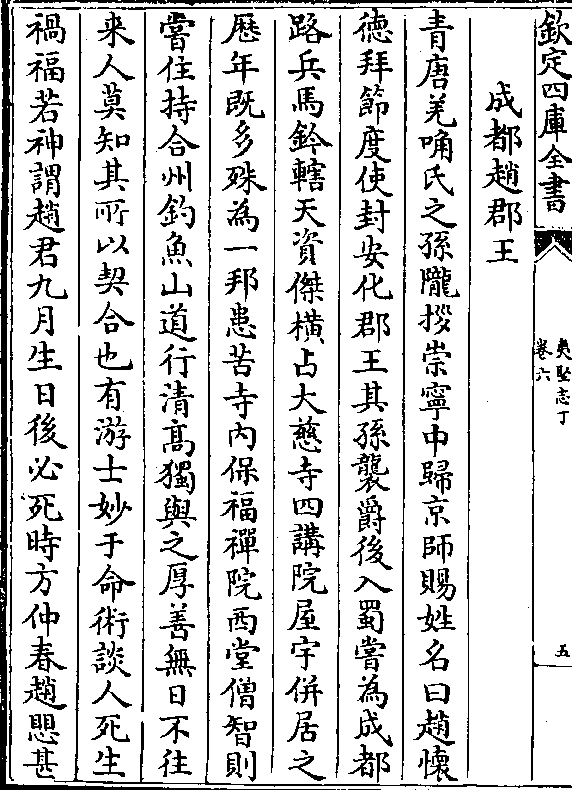 欽定四庫全書
夷堅志丁
卷六
五
成都趙郡王
青唐羌唃氏之孫隴拶崇寧中歸京師賜姓名曰趙懷
德拜節度使封安化郡王其孫襲爵後入蜀嘗為成都
路兵馬鈐轄天資傑橫占大慈寺四講院屋宇併居之
歴年既多殊為一邦患苦寺内保福禪院西堂僧智則
嘗住持合州釣魚山道行清髙獨與之厚善無日不往
来人莫知其所以契合也有游士妙于命術談人死生
禍福若神謂趙君九月生日後必死時方仲春趙愳甚